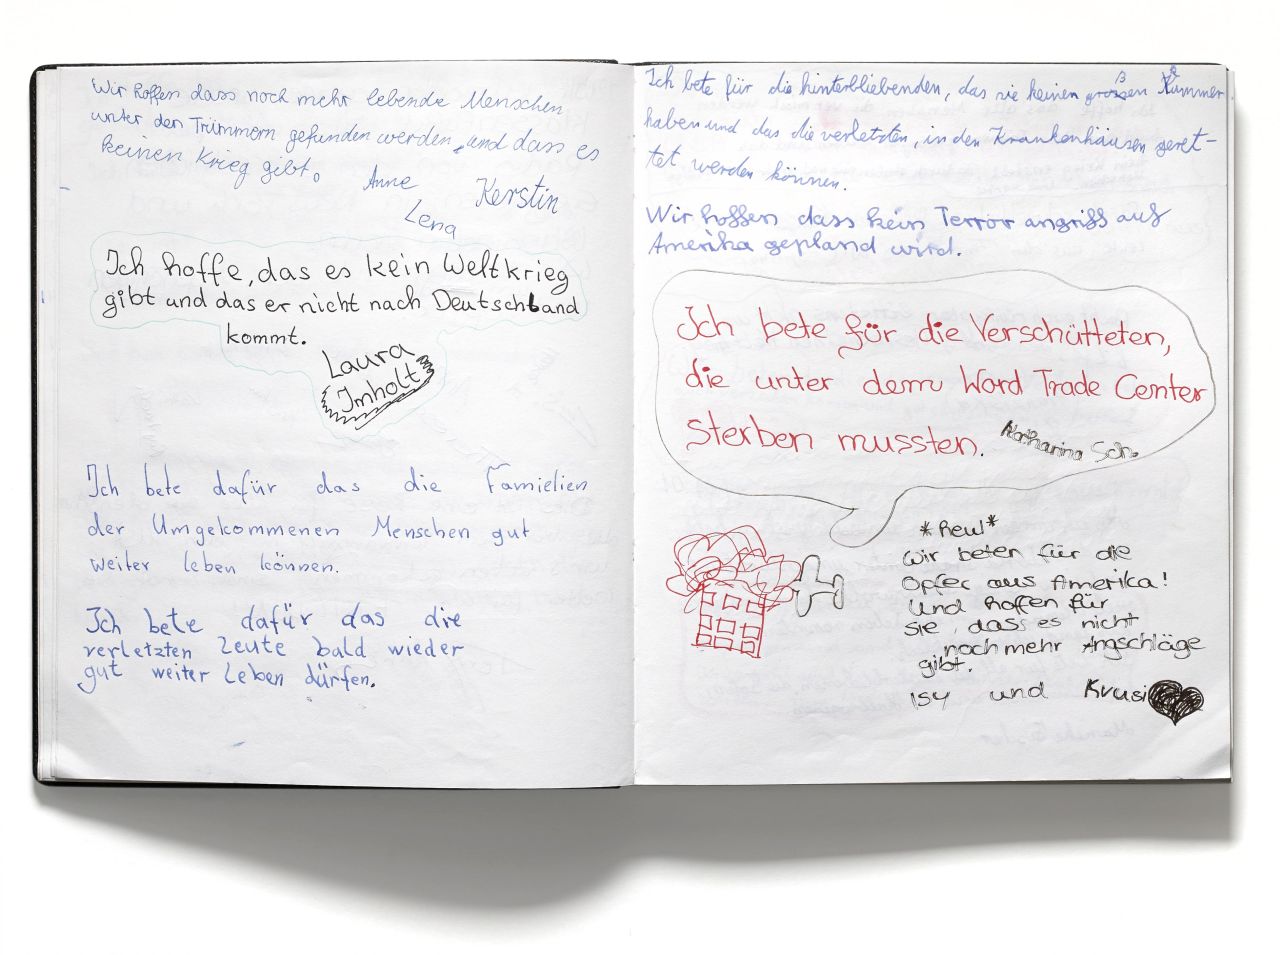 Wir hoffen dass noch mehr lebende Menschen
unter den Trümmern gefunden werden, und dass es
keinen Krieg gibt.
Anne
Kerstin
Lena
Ich hoffe, das es kein Weltkrieg
gibt und das er nicht nach Deutschland
kommt.
Laura
Imholt
Ich bete dafür das die Famielien
der Umgekommenen Menschen gut
weiter leben können.
Ich bete dafür das die
verletzten Leute bald wieder
gut weiter leben dürfen.
Ich bete für die hinterbliebenden, das sie keinen großen Kummer
haben und das die verletzten, in den Krankenhäusen geret-
tet werden können.
Wir hoffen dass kein Terror angriff auf
Amerika gepland wird.
Ich bete für die Verschütteten,
die unter dem Word Trade Center
sterben mussten.
Katharina Sch.
*heul*
Wir beten für die
Opfer aus Amerika!
Und hoffen für
sie, dass es nicht
noch mehr Angschläge
gibt.
Isy und Krusi